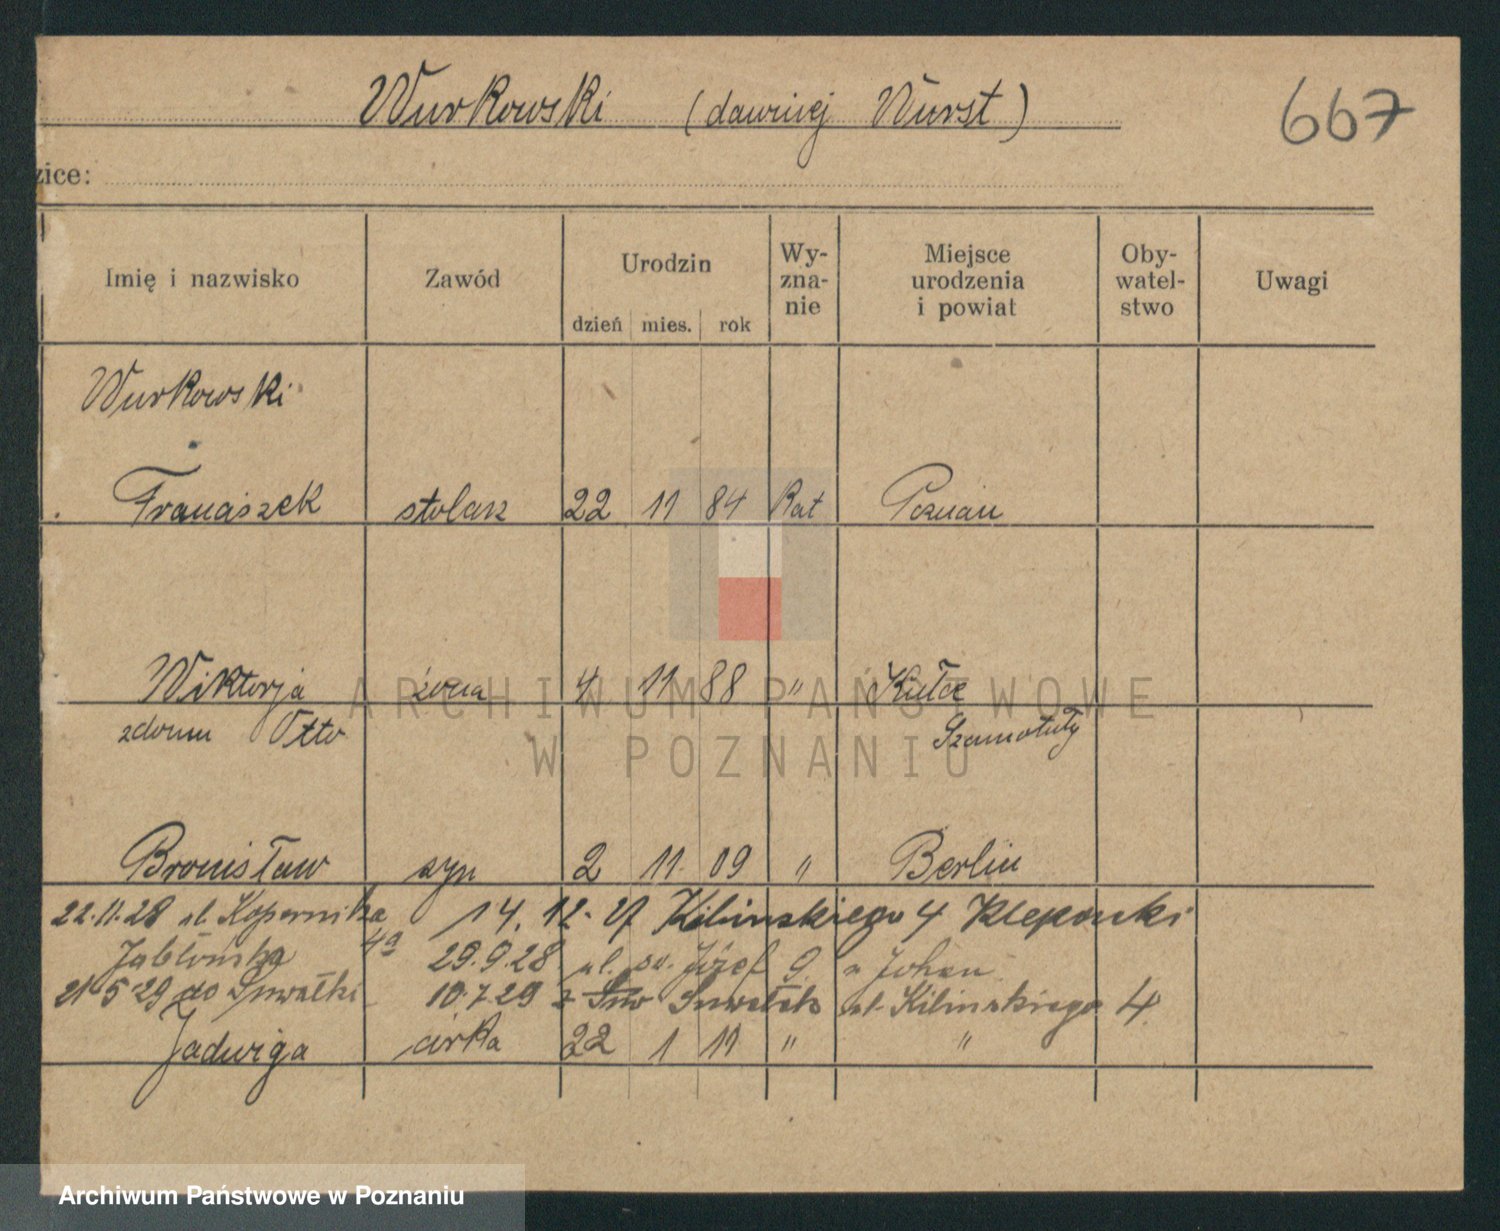 Wurkowski (dawniej Wurst) 667
zice:
Imię i nazwisko Zawód Urodzin dzień mies. rok Wy-zna-nie Miejsce urodzenia i powiat Oby-watel-stwo Uwagi
Wurkowski
Franciszek stolarz 22 11 84 Kat Poznań
ARCHIWUM PAŃSTWOWE
W POZNANIU
Wiktorja żona 4 11 88 " Kiełcz
zdomu Otto Szamotuły
Bronisław syn 2 11 09 " Berlin
22.11.28 ul. Kopernika 4a 14.12.27 Kilinskiego 4
Jabłońska 29.9.28 ul. sw. Józef 9. u Johan
21 5 29 do Suwałki 10.7.29 z Suw Suwałek ul. Kilinskiego 4.
Jadwiga córka 22 1 11 " "
Archiwum Państwowe w Poznaniu